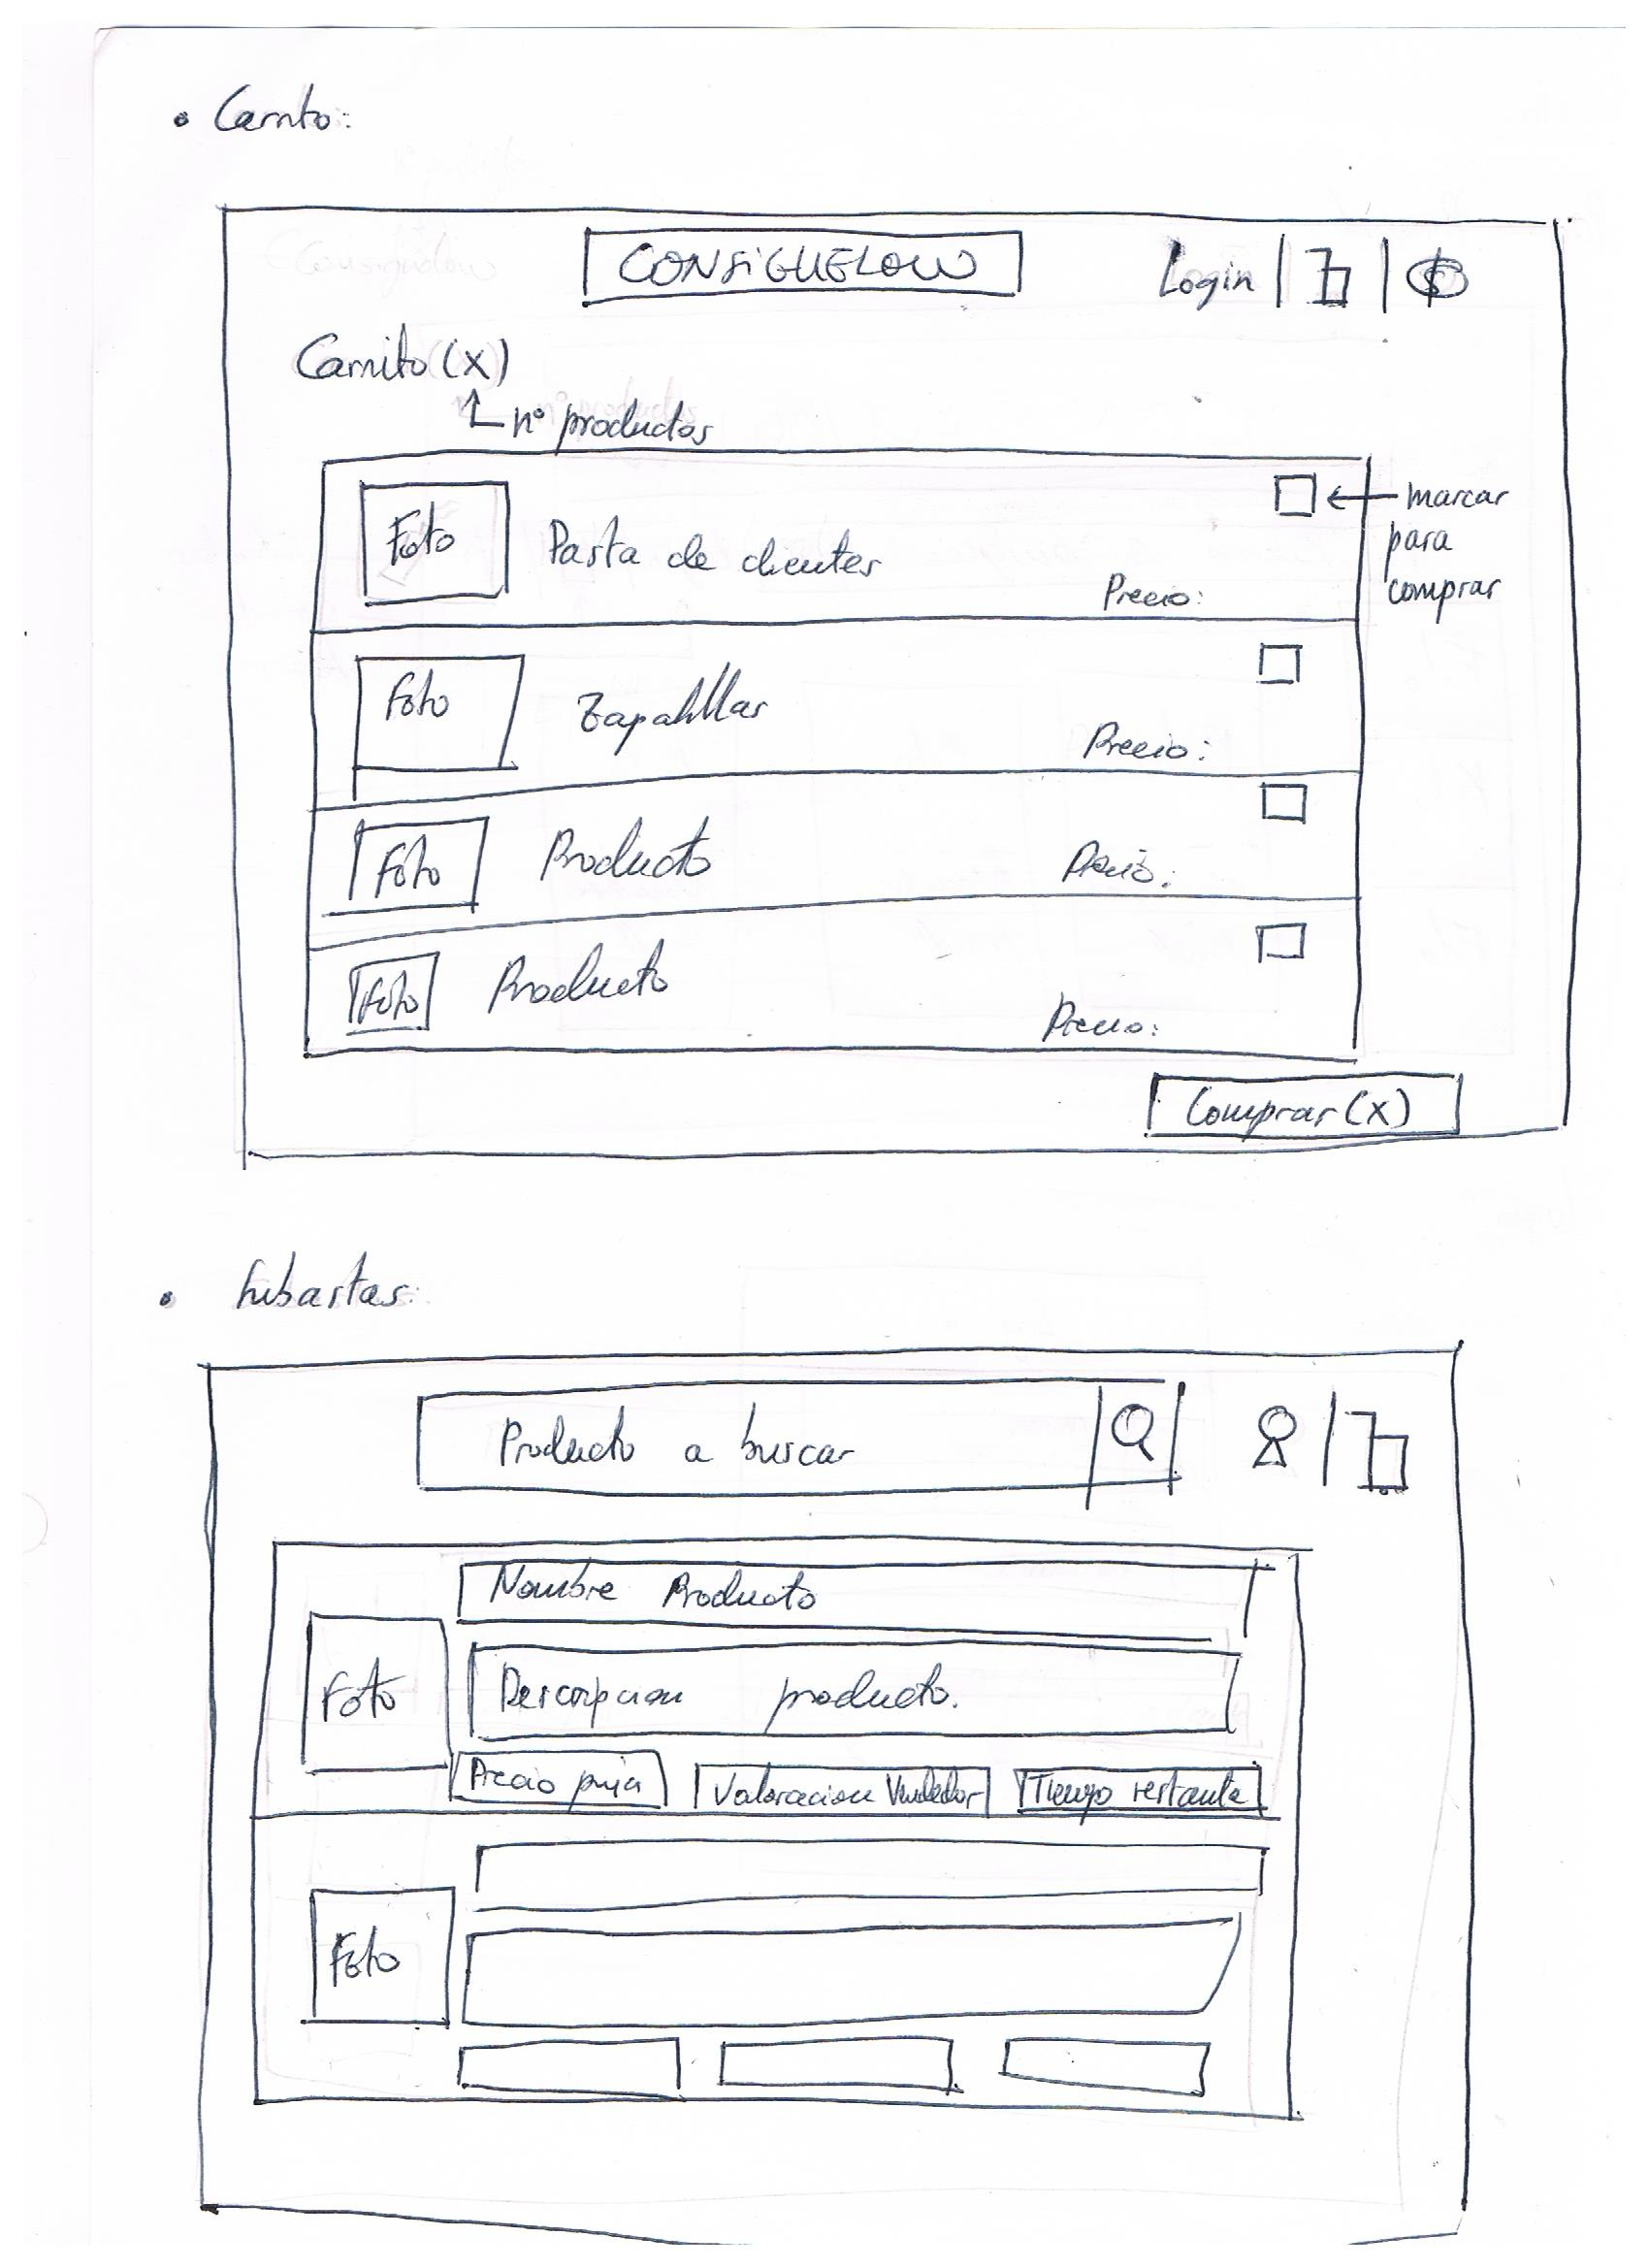 • Carrito:
CONSIGUELOW
Login | | $
Carrito (X)
nº productos
Foto Pasta de dientes Precio:
marcar
para
comprar
Foto Zapatillas Precio:
Foto Producto Precio:
Foto Producto Precio:
Comprar (X)
• Subastas:
Producto a buscar
Nombre Producto
Foto Descripcion producto.
Precio puja Valoracion Vendedor Tiempo restante
Foto